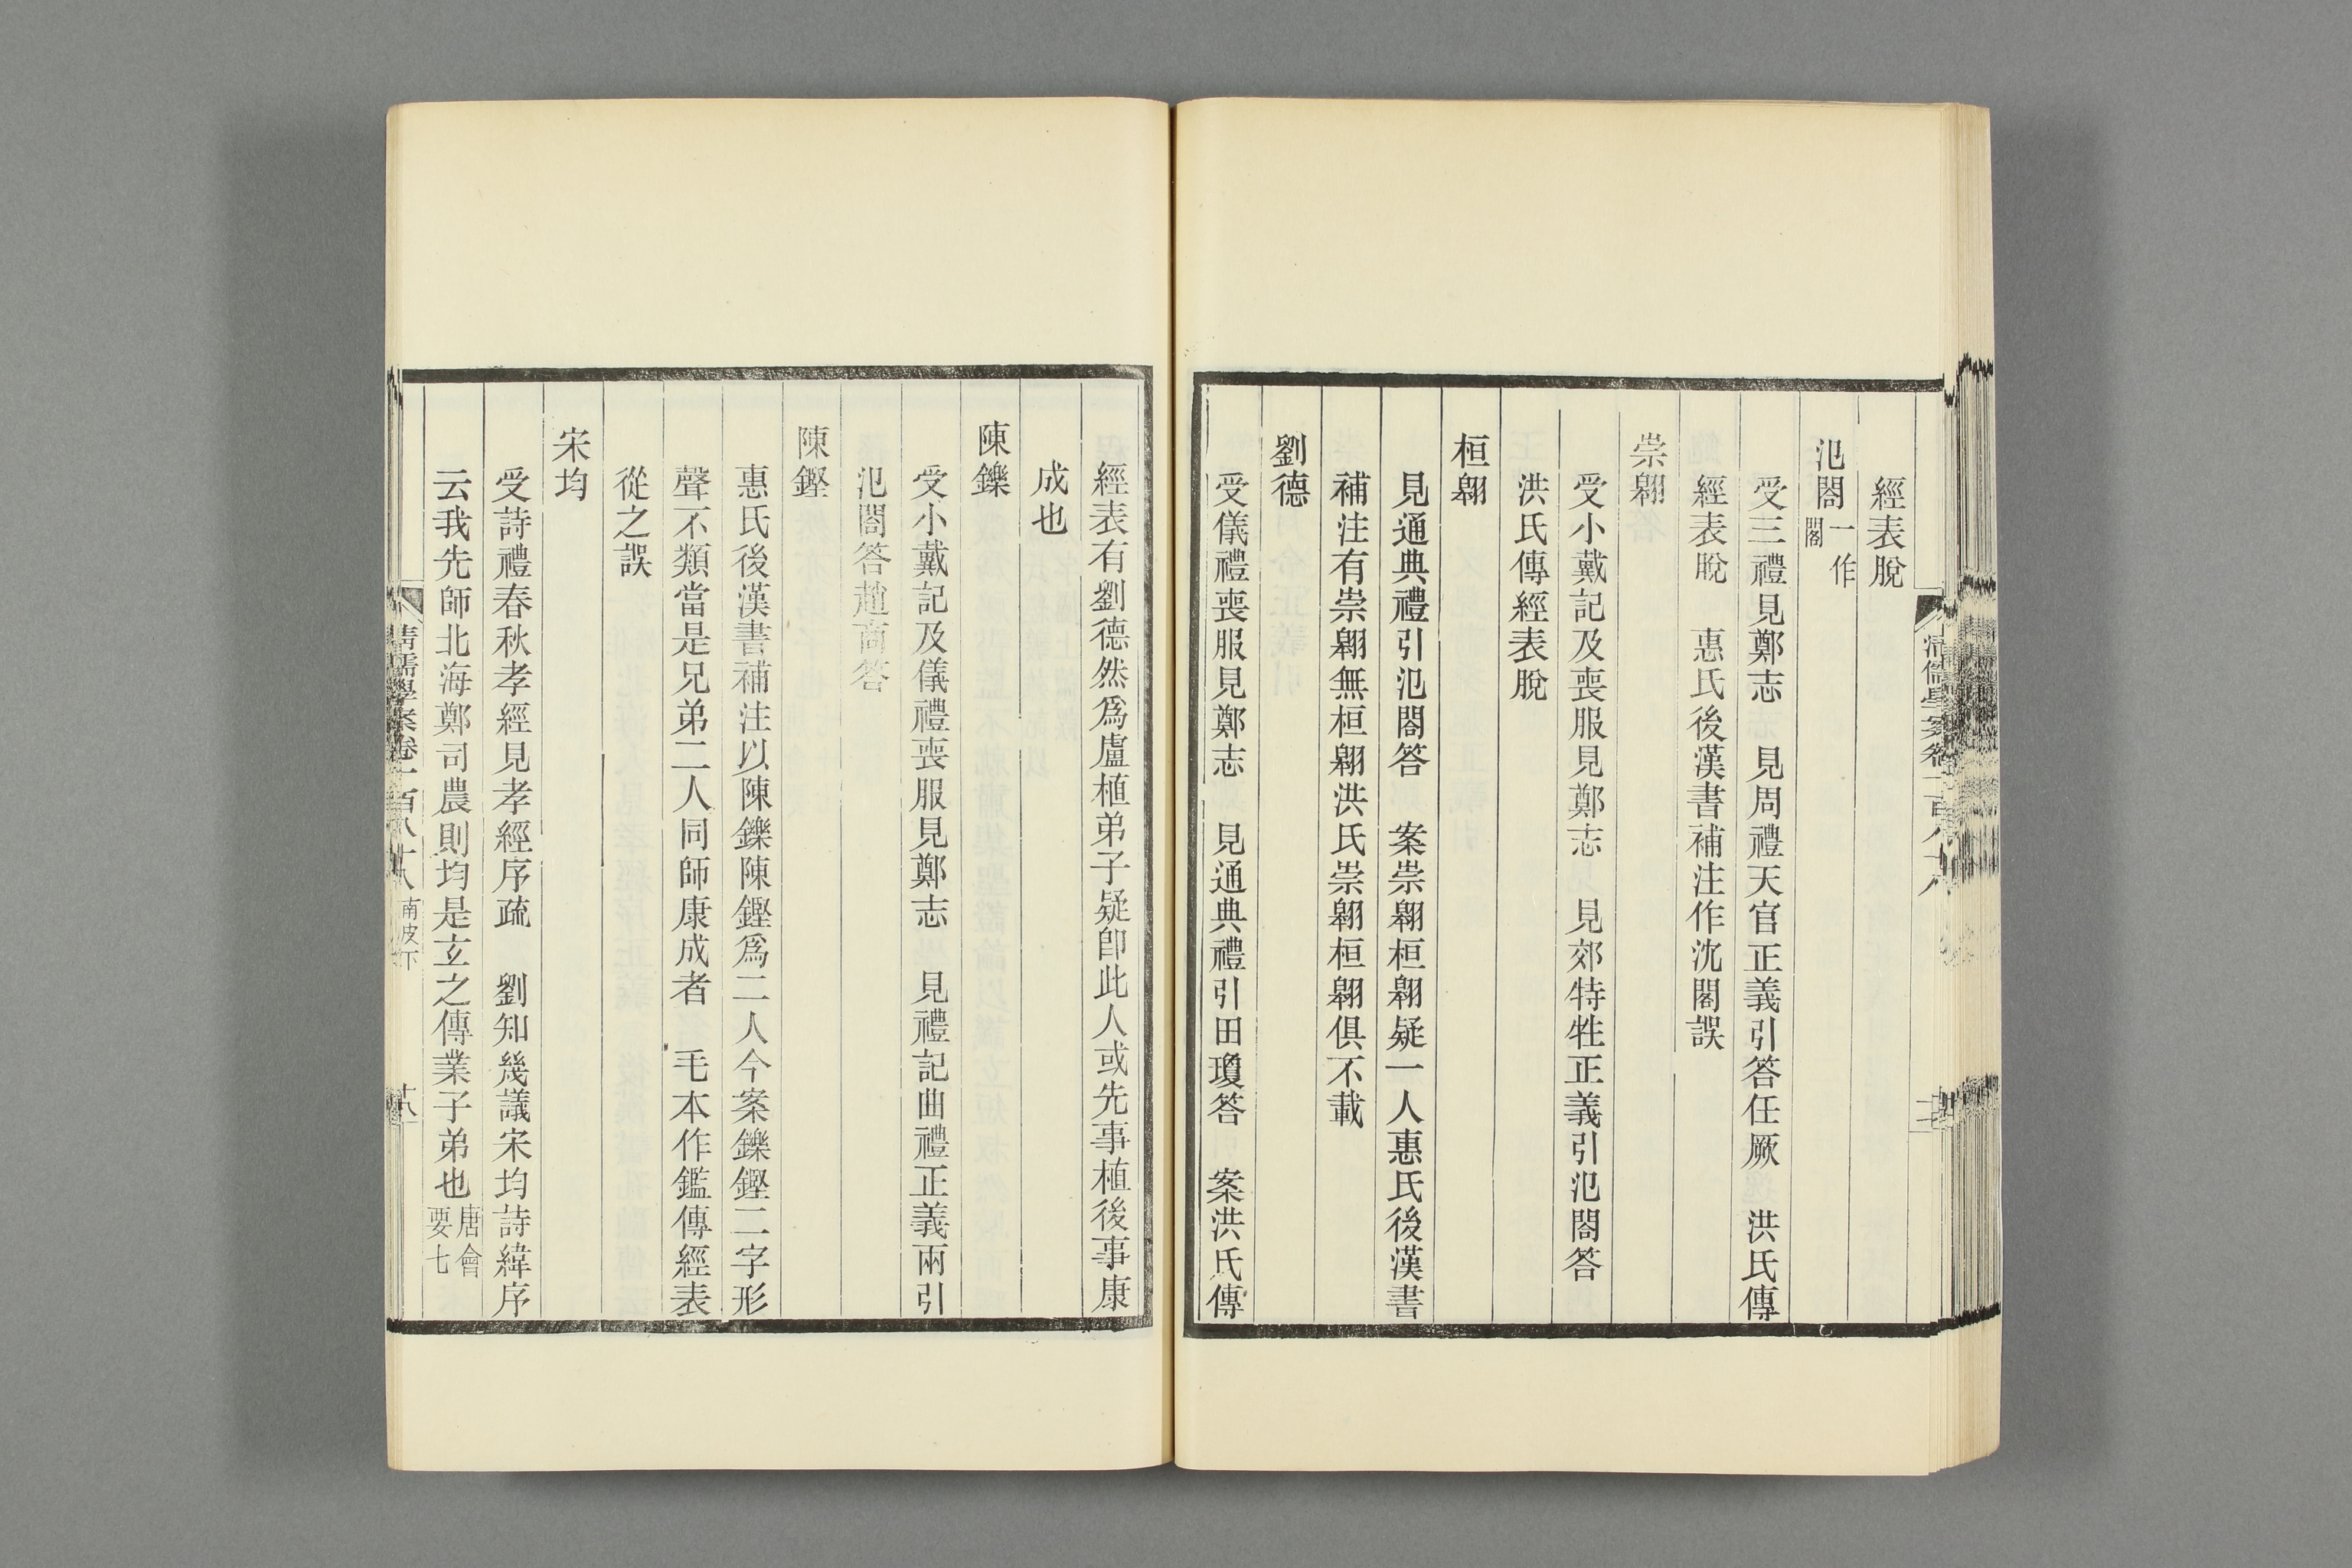 經表脫
氾閣一作閤
受三禮見鄭志　見周禮天官正義引答任厥　洪氏傳
經表脫　惠氏後漢書補注作沈閣誤
崇翱
受小戴記及喪服見鄭志　見郊特牲正義引氾閣答
洪氏傳經表脫
桓翱
見通典禮引氾閣答　案崇翱桓翱疑一人惠氏後漢書
補注有崇翱無桓翱洪氏崇翱桓翱俱不載
劉德
受儀禮喪服見鄭志　見通典禮引田瓊答　案洪氏傳
經表有劉德然爲盧植弟子疑卽此人或先事植後事康
成也
陳鑠
受小戴記及儀禮喪服見鄭志　見禮記曲禮正義兩引
氾閣答趙商答
陳鏗
惠氏後漢書補注以陳鑠陳鏗爲二人今案鑠鏗二字形
聲不類當是兄弟二人同師康成者　毛本作鑑傳經表
從之誤
宋均
受詩禮春秋孝經見孝經序疏　劉知幾議宋均詩緯序
云我先師北海鄭司農則均是玄之傳業子弟也唐會要七
清儒學案卷一百八十八　南皮下　十八